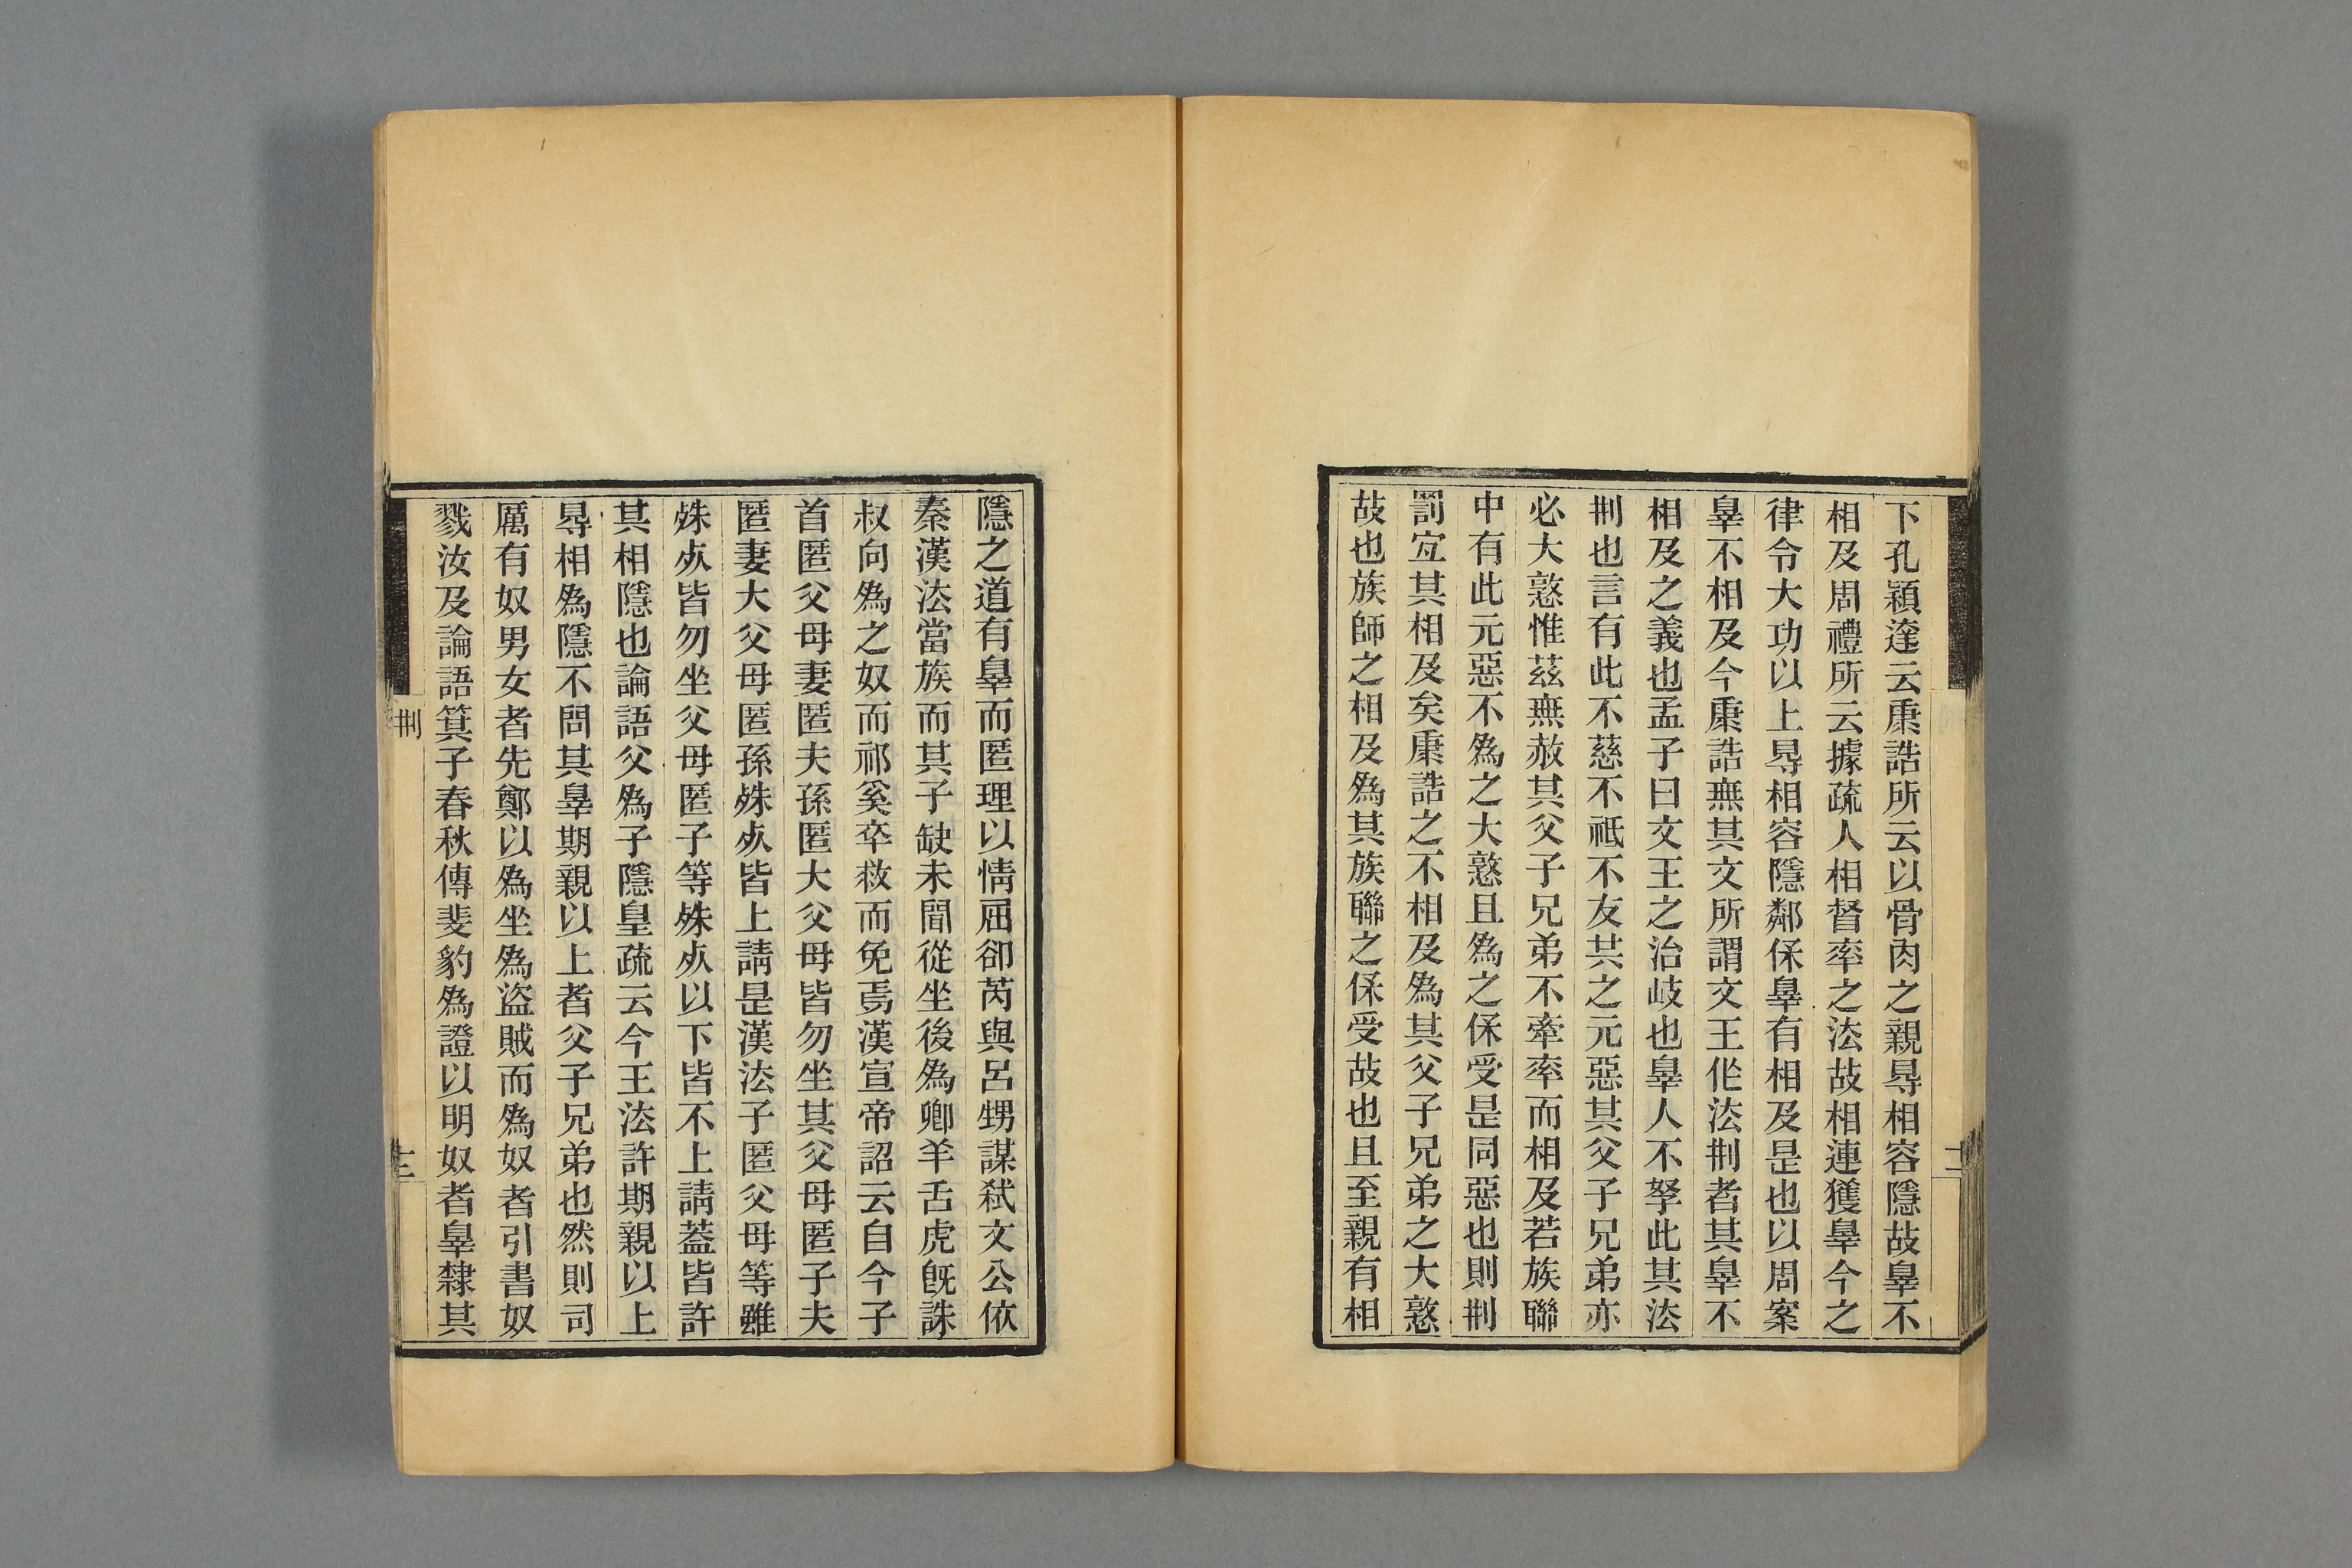 下孔穎達云康誥所云以骨肉之親㝵相容隱故辠不
相及周禮所云據疏人相督率之法故相連獲辠今之
律令大功以上㝵相容隱鄰保辠有相及是也以周案
辠不相及今康誥無其文所謂文王作法荆者其辠不
相及之義也孟子曰文王之治岐也辠人不孥此其法
荆也言有此不慈不祗不友共之元惡其父子兄弟亦
必大憝惟茲無赦其父子兄弟不牽率而相及若族聯
中有此元惡不爲之大憝且爲之保受是同惡也則荆
罰宜其相及矣康誥之不相及爲其父子兄弟之大憝
故也族師之相及爲其族聯之保受故也且至親有相
十二
隱之道有辠而匿理以情屈卻芮與呂甥謀弒文公依
秦漢法當族而其子缺未聞從坐後爲卿羊舌虎旣誅
叔向爲之奴而祁奚卒救而免焉漢宣帝詔云自今子
首匿父母妻匿夫孫匿大父母皆勿坐其父母匿子夫
匿妻大父母匿孫殊𣦸皆上請是漢法子匿父母等雖
殊𣦸皆勿坐父母匿子等殊𣦸以下皆不上請蓋皆許
其相隱也論語父爲子隱皇疏云今王法許期親以上
㝵相爲隱不問其辠期親以上者父子兄弟也然則司
厲有奴男女者先鄭以爲坐爲盜賊而爲奴者引書奴
戮汝及論語箕子春秋傳斐豹爲證以明奴者辠隸其
荆
十三